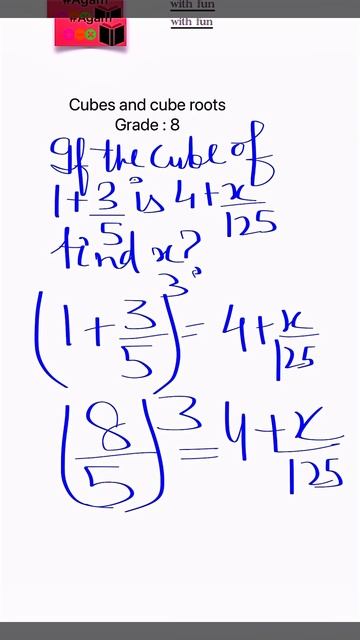 #Agam
with fun
#Agam
with fun
Cubes and cube roots
Grade : 8
If the cube of
1+3/5 is 4+x/125
find x?
(1+3/5)^3 = 4+x/125
(8/5)^3 = 4+x/125